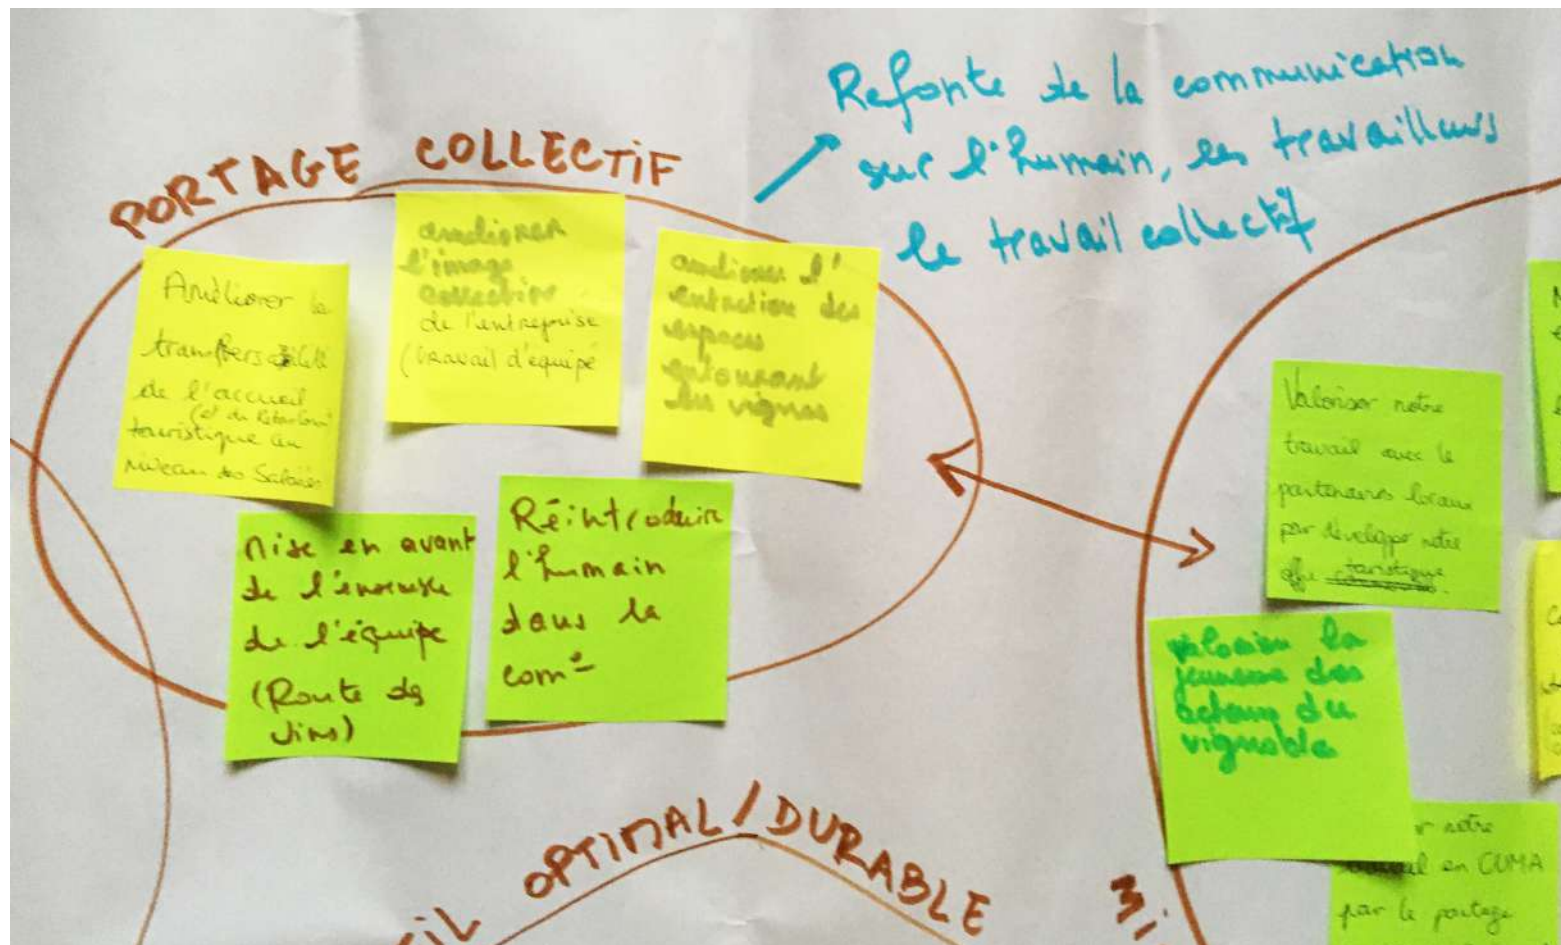 PORTAGE COLLECTIF
Refonte de la communication
sur l'humain, les travailleurs
le travail collectif
Améliorer la
de l'accueil
touristique au
niveau des Salariés
améliorer
l'image
collective
de l'entreprise
(travail d'équipe
améliorer l'
entretien des
espaces
entourant
les vignes
Mise en avant
de l'ensemble
de l'équipe
(Route des
Vins)
Réintroduire
l'humain
dans la
com°
Valoriser notre
travail avec le
partenaires locaux
par développer notre
offre touristique.
valoriser la
jeunesse des
acteurs du
vignoble
notre
en CUMA
par le partage
OPTIMAL / DURABLE